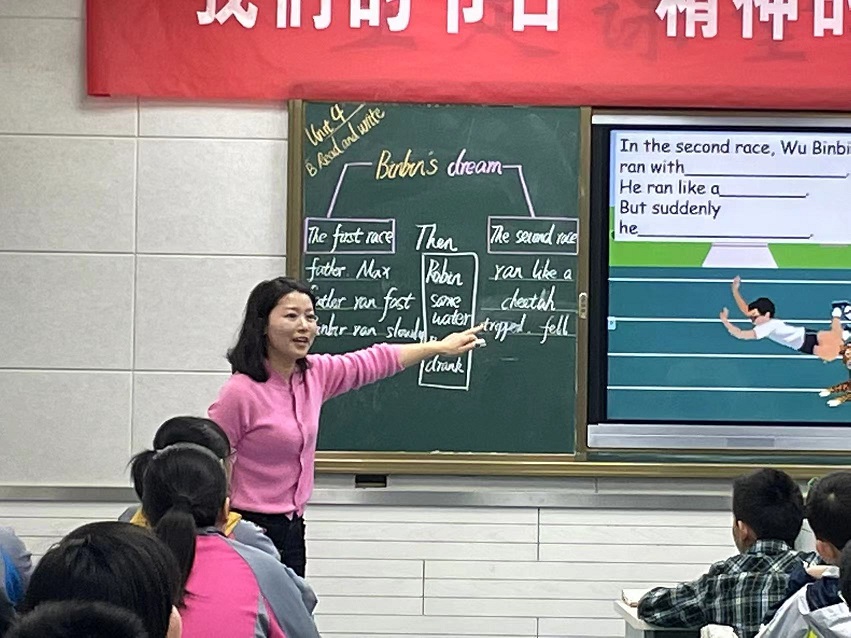 我们的节日 精神的
Unit 4
B Read and write
Binbin's dream
The first race
father. Max
father ran fast
ran slowly
Then
Robin
some
water
drank
The second race
ran like a
cheetah
tripped. fell
In the second race, Wu Binbi
ran with_______________.
He ran like a_________.
But suddenly
he_________________.